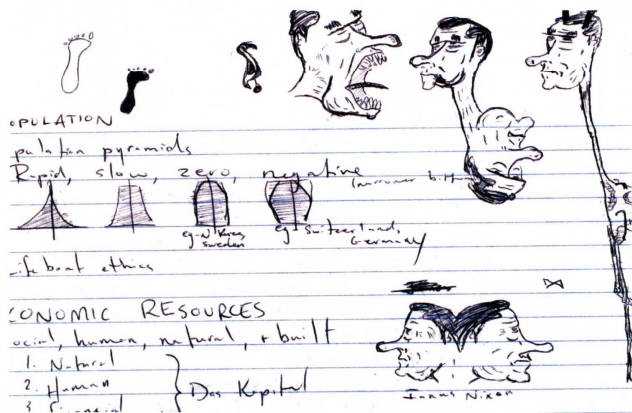 OPULATION
pulation pyramids
Rapid, slow, zero, negative
(narrower
eg - N Korea, Sweden
eg - Switzerland, Germany
ifeboat ethics
CONOMIC RESOURCES
ocial, human, natural, + built
1. Natural
2. Human
3. Financial
Das Kapital
Janus Nixon